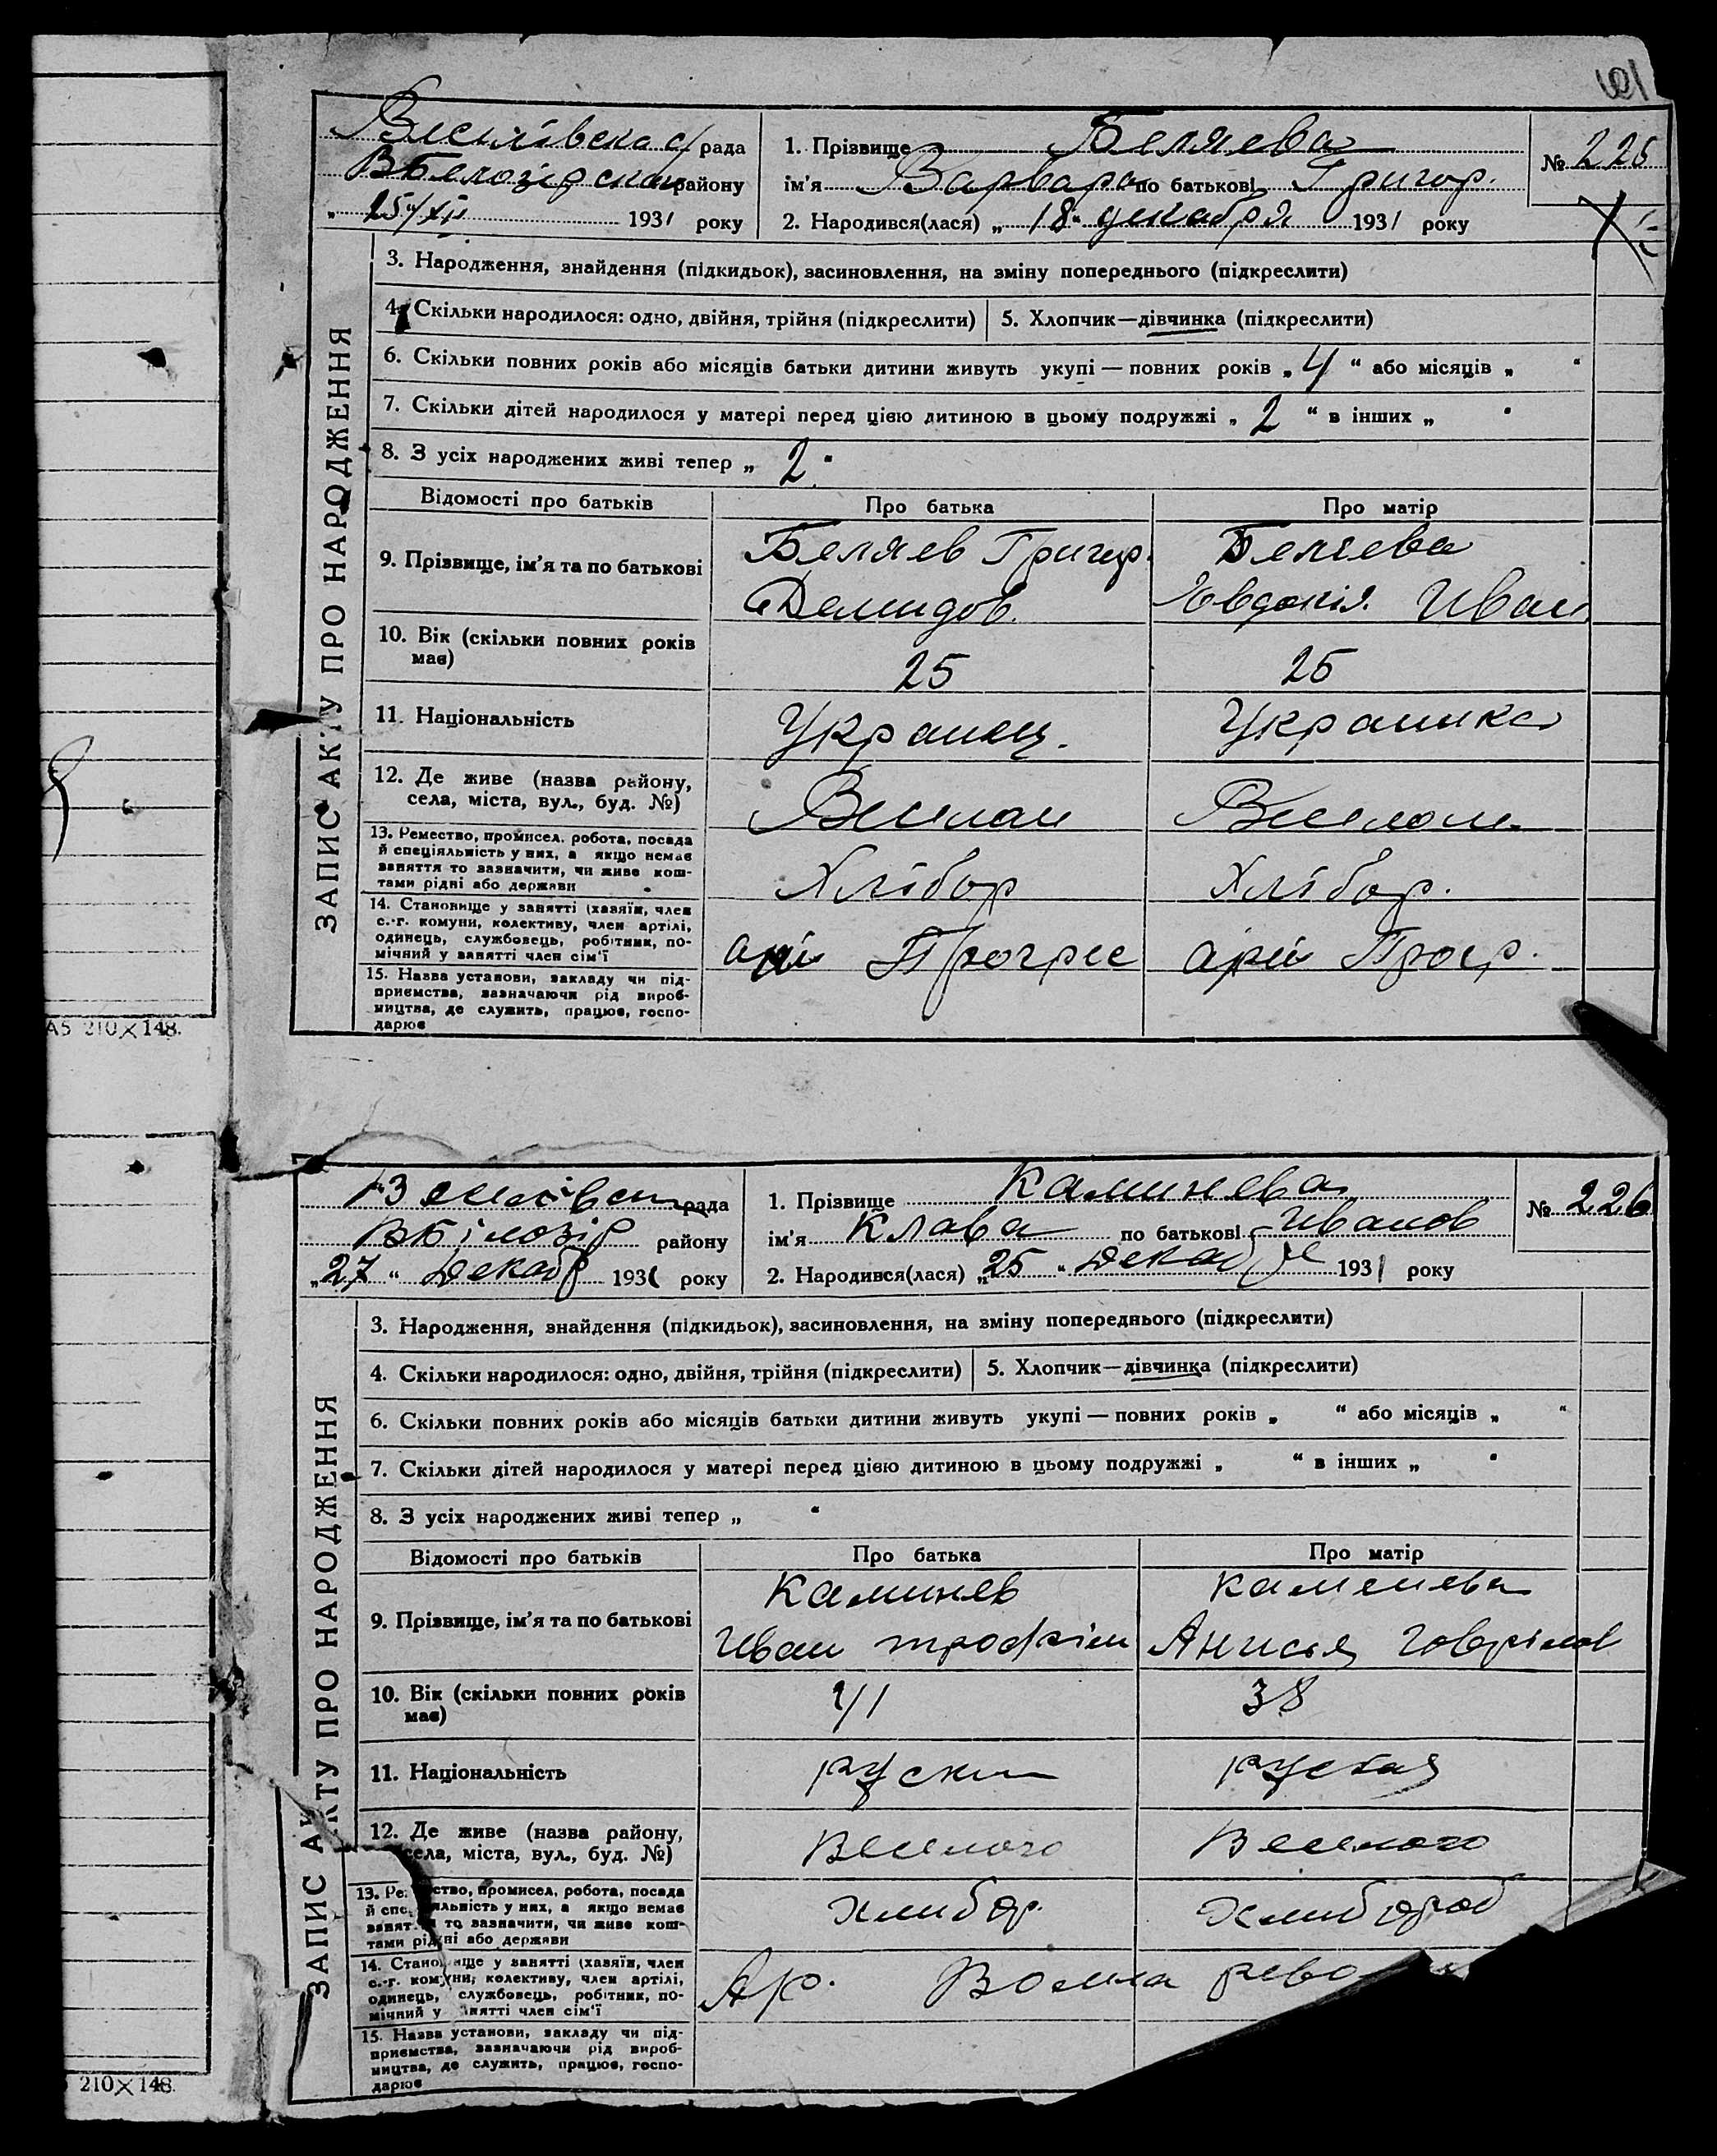 101
Веселівська с/рада
ВБелозірскаи району
„25“/XII 1931 року
1. Прізвище Беляева
ім’я Варвара по батькові Григор.
2. Народився(лася) „18“ декабря 1931 року
№ 225
ЗАПИС АКТУ ПРО НАРОДЖЕННЯ
3. Народження, знайдення (підкидьок), засиновлення, на зміну попереднього (підкреслити)
4. Скільки народилося: одно, двійня, трійня (підкреслити) 5. Хлопчик—дівчинка (підкреслити)
6. Скільки повних років або місяців батьки дитини живуть укупі — повних років „4“ або місяців „ “
7. Скільки дітей народилося у матері перед цією дитиною в цьому подружжі „2“ в інших „ “
8. З усіх народжених живі тепер „2“
Відомості про батьків Про батька Про матір
9. Прізвище, ім’я та по батькові Беляев Григор. Демидов. Беляева Евдокія Иван
10. Вік (скільки повних років має) 25 25
11. Національність Украинец. Украинка
12. Де живе (назва району, села, міста, вул., буд. №)
13. Ремество, промисел, робота, посада й спеціяльність у них, а якщо немає заняття то зазначити, чи живе коштами рідні або держави Хлібор Хлібор.
14. Становище у занятті (хазяїн, член с.-г. комуни, колективу, член артілі, одинець, службовець, робітник, помічний у занятті член сім’ї Прогрес Прогр.
15. Назва установи, закладу чи підприємства, зазначаючи рід виробництва, де служить, працює, господарює
А5 210×148.
рада
ВБілозір району
„27“ Декабр 1931 року
1. Прізвище Каминева
ім’я Клава по батькові Иванов
2. Народився(лася) „25“ Декабре 1931 року
№ 226
ЗАПИС АКТУ ПРО НАРОДЖЕННЯ
3. Народження, знайдення (підкидьок), засиновлення, на зміну попереднього (підкреслити)
4. Скільки народилося: одно, двійня, трійня (підкреслити) 5. Хлопчик—дівчинка (підкреслити)
6. Скільки повних років або місяців батьки дитини живуть укупі — повних років „ “ або місяців „ “
7. Скільки дітей народилося у матері перед цією дитиною в цьому подружжі „ “ в інших „ “
8. З усіх народжених живі тепер „ “
Відомості про батьків Про батька Про матір
9. Прізвище, ім’я та по батькові Каминев Иван трофім Каменева Анисья Говрілов
10. Вік (скільки повних років має) 41 38
11. Національність руски руская
12. Де живе (назва району, села, міста, вул., буд. №) Веселого Веселого
13. Ремество, промисел, робота, посада й спеціяльність у них, а якщо немає заняття то зазначити, чи живе коштами рідні або держави хлибор. хлибороб
14. Становище у занятті (хазяїн, член с.-г. комуни, колективу, член артілі, одинець, службовець, робітник, помічний у занятті член сім’ї Ар. Волна рево
15. Назва установи, закладу чи підприємства, зазначаючи рід виробництва, де служить, працює, господарює
210×148.